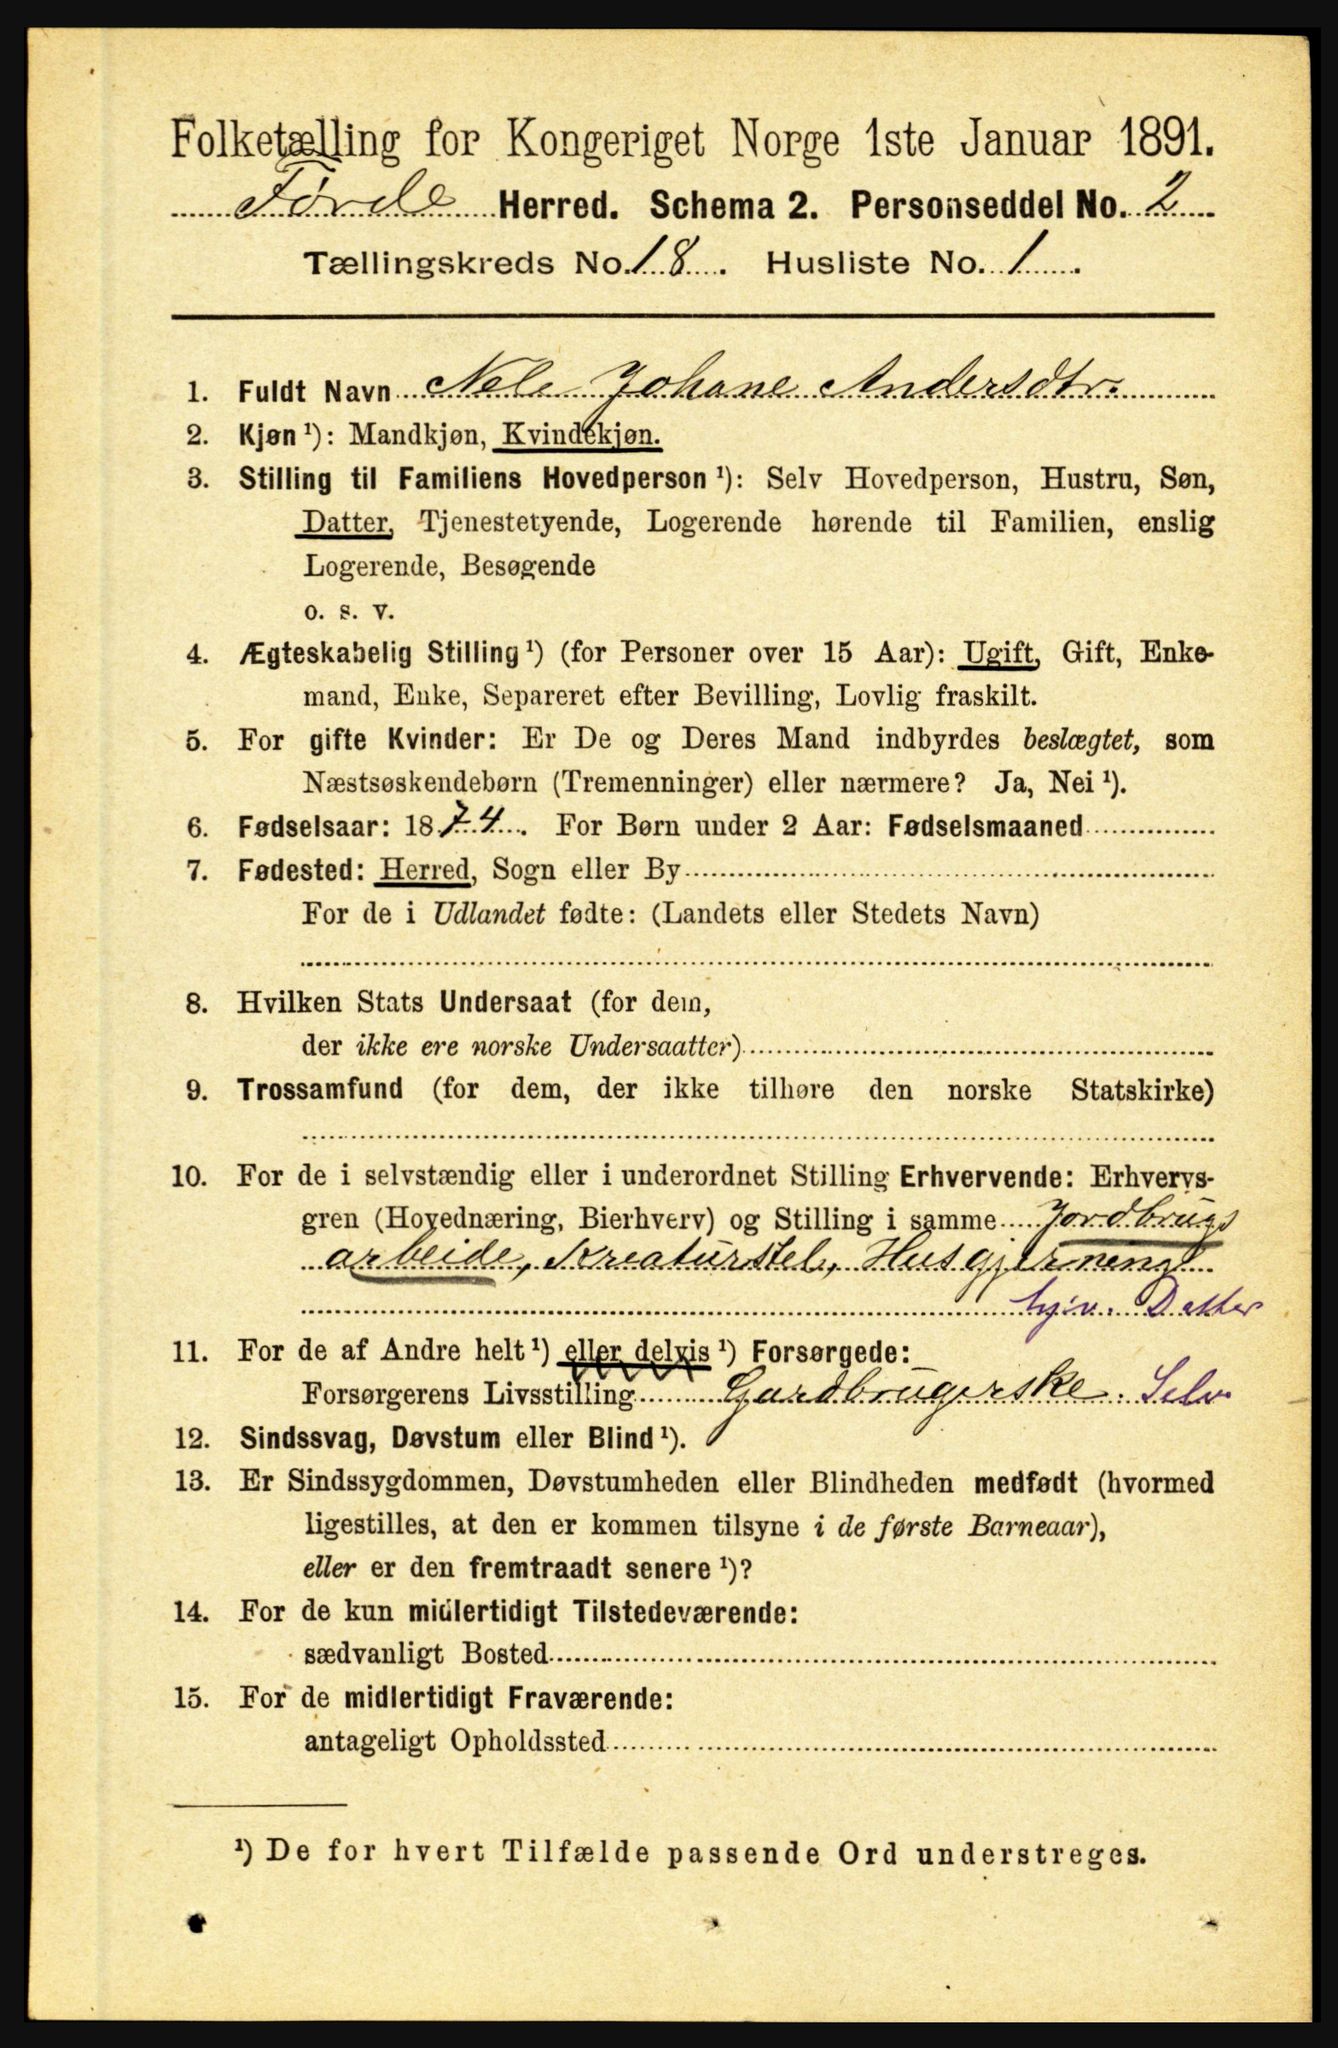 Folketælling for Kongeriget Norge 1ste Januar 1891.
Førde Herred. Schema 2. Personseddel No. 2
Tællingskreds No. 18. Husliste No. 1
1. Fuldt Navn Nele Johane Andersdtr.
2. Kjøn ¹): Mandkjøn, Kvindekjøn.
3. Stilling til Familiens Hovedperson ¹): Selv Hovedperson, Hustru, Søn,
Datter, Tjenestetyende, Logerende hørende til Familien, enslig
Logerende, Besøgende
o. s. v.
4. Ægteskabelig Stilling ¹) (for Personer over 15 Aar): Ugift, Gift, Enke-
mand, Enke, Separeret efter Bevilling, Lovlig fraskilt.
5. For gifte Kvinder: Er De og Deres Mand indbyrdes beslægtet, som
Næstsøskendebørn (Tremenninger) eller nærmere? Ja, Nei ¹).
6. Fødselsaar: 1874. For Børn under 2 Aar: Fødselsmaaned
7. Fødested: Herred, Sogn eller By
For de i Udlandet fødte: (Landets eller Stedets Navn)
8. Hvilken Stats Undersaat (for dem,
der ikke ere norske Undersaatter)
9. Trossamfund (for dem, der ikke tilhøre den norske Statskirke)
10. For de i selvstændig eller i underordnet Stilling Erhvervende: Erhvervs-
gren (Hovednæring, Bierhverv) og Stilling i samme Jordbrugs
arbeide, Kreaturstel, Husgjerning
hjv. Datter
11. For de af Andre helt ¹) eller delvis ¹) Forsørgede:
Forsørgerens Livsstilling Gardbrugerske. Selv
12. Sindssvag, Døvstum eller Blind ¹).
13. Er Sindssygdommen, Døvstumheden eller Blindheden medfødt (hvormed
ligestilles, at den er kommen tilsyne i de første Barneaar),
eller er den fremtraadt senere ¹)?
14. For de kun midlertidigt Tilstedeværende:
sædvanligt Bosted
15. For de midlertidigt Fraværende:
antageligt Opholdssted
¹) De for hvert Tilfælde passende Ord understreges.